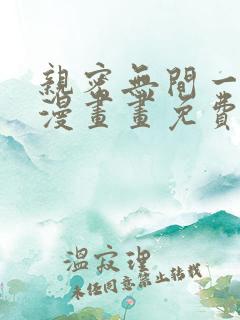 親密無間一
漫畫畫免費
溫寂理
未经同意禁止转载